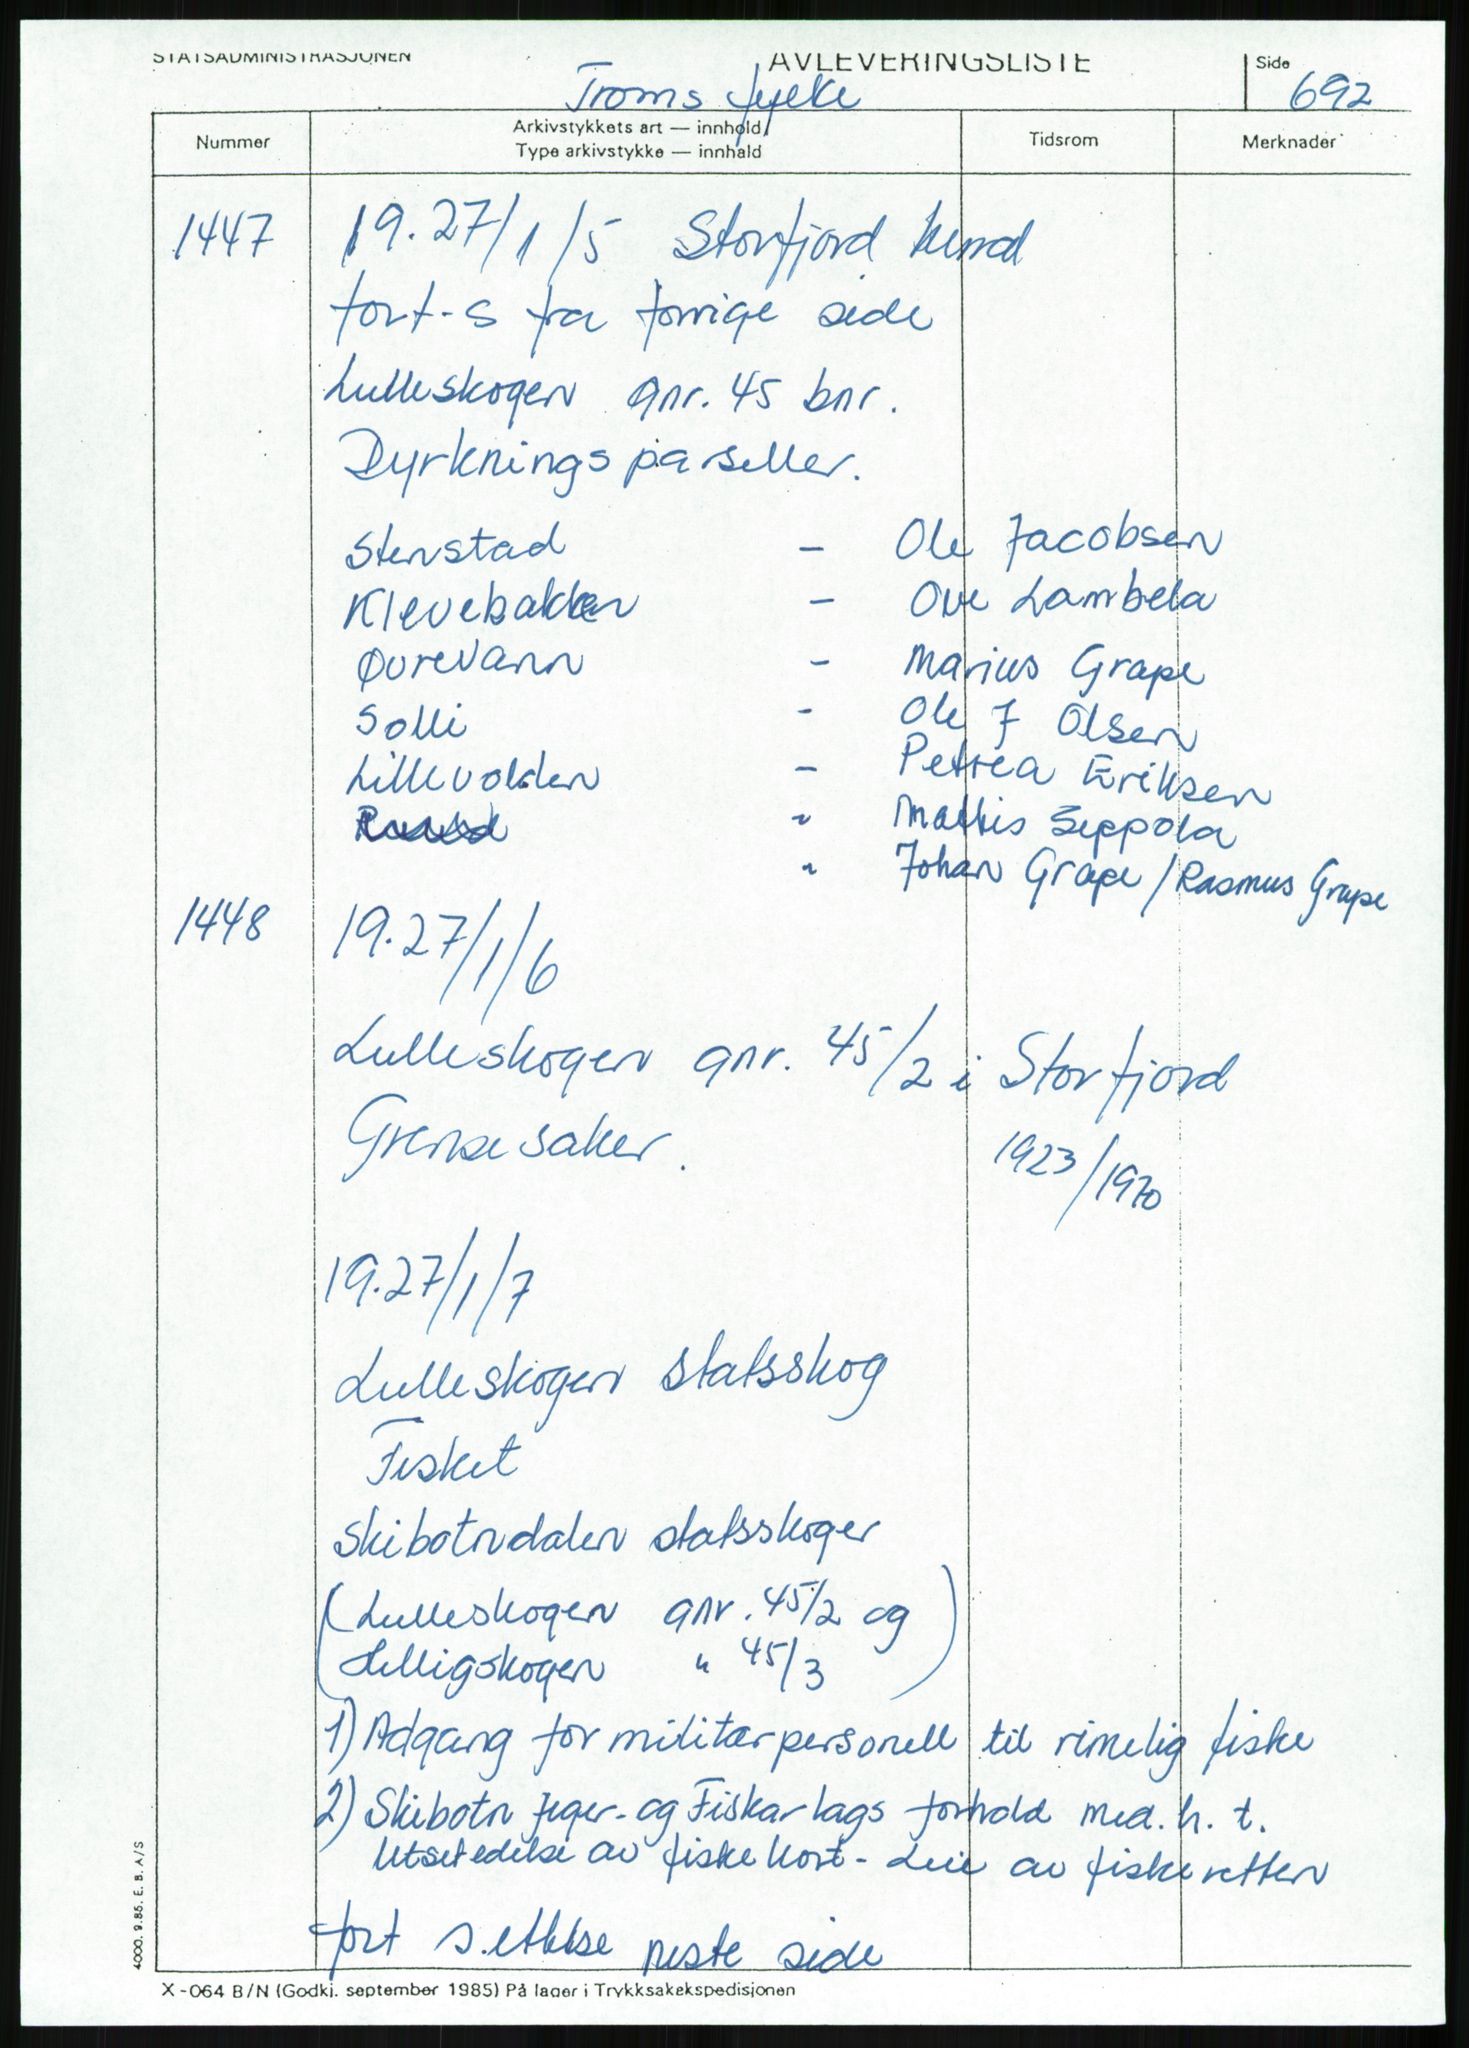 STATSADMINISTRASJONEN AVLEVERINGSLISTE Side
Troms fylke 692
Nummer Arkivstykkets art — innhold/ Type arkivstykke — innhald Tidsrom Merknader
1447 19.27/1/5 Storfjord herred
fort-s fra forrige side
Lulleskogen gnr. 45 bnr.
Dyrkningsparseller.
Stenstad – Ole Jacobsen
Klevebakken – Ove Lambela
Øvrevann – Marius Grape
Solli - Ole J Olsen
Lillevolden – Petrea Eriksen
" Mathis Seppola
" Johan Grape / Rasmus Grape
1448 19.27/1/6
Lulleskogen gnr. 45/2 i Storfjord
Grensesaker. 1923/1970
19.27/1/7
Lulleskogen statsskog
Fisket
Skibotndalen statsskoger
(Lulleskogen gnr. 45/2 og
Helligskogen " 45/3)
1) Adgang for militærpersonell til rimelig fiske
2) Skibotn Jeger- og Fiskarlags forhold med. h. t.
Utstedelse av fiskekort - Leie av fiskeretten
fort s.ettelse neste side
X-064 B/N (Godkj. september 1985) På lager i Trykksakekspedisjonen
4000. 9.85. E. B. A/S